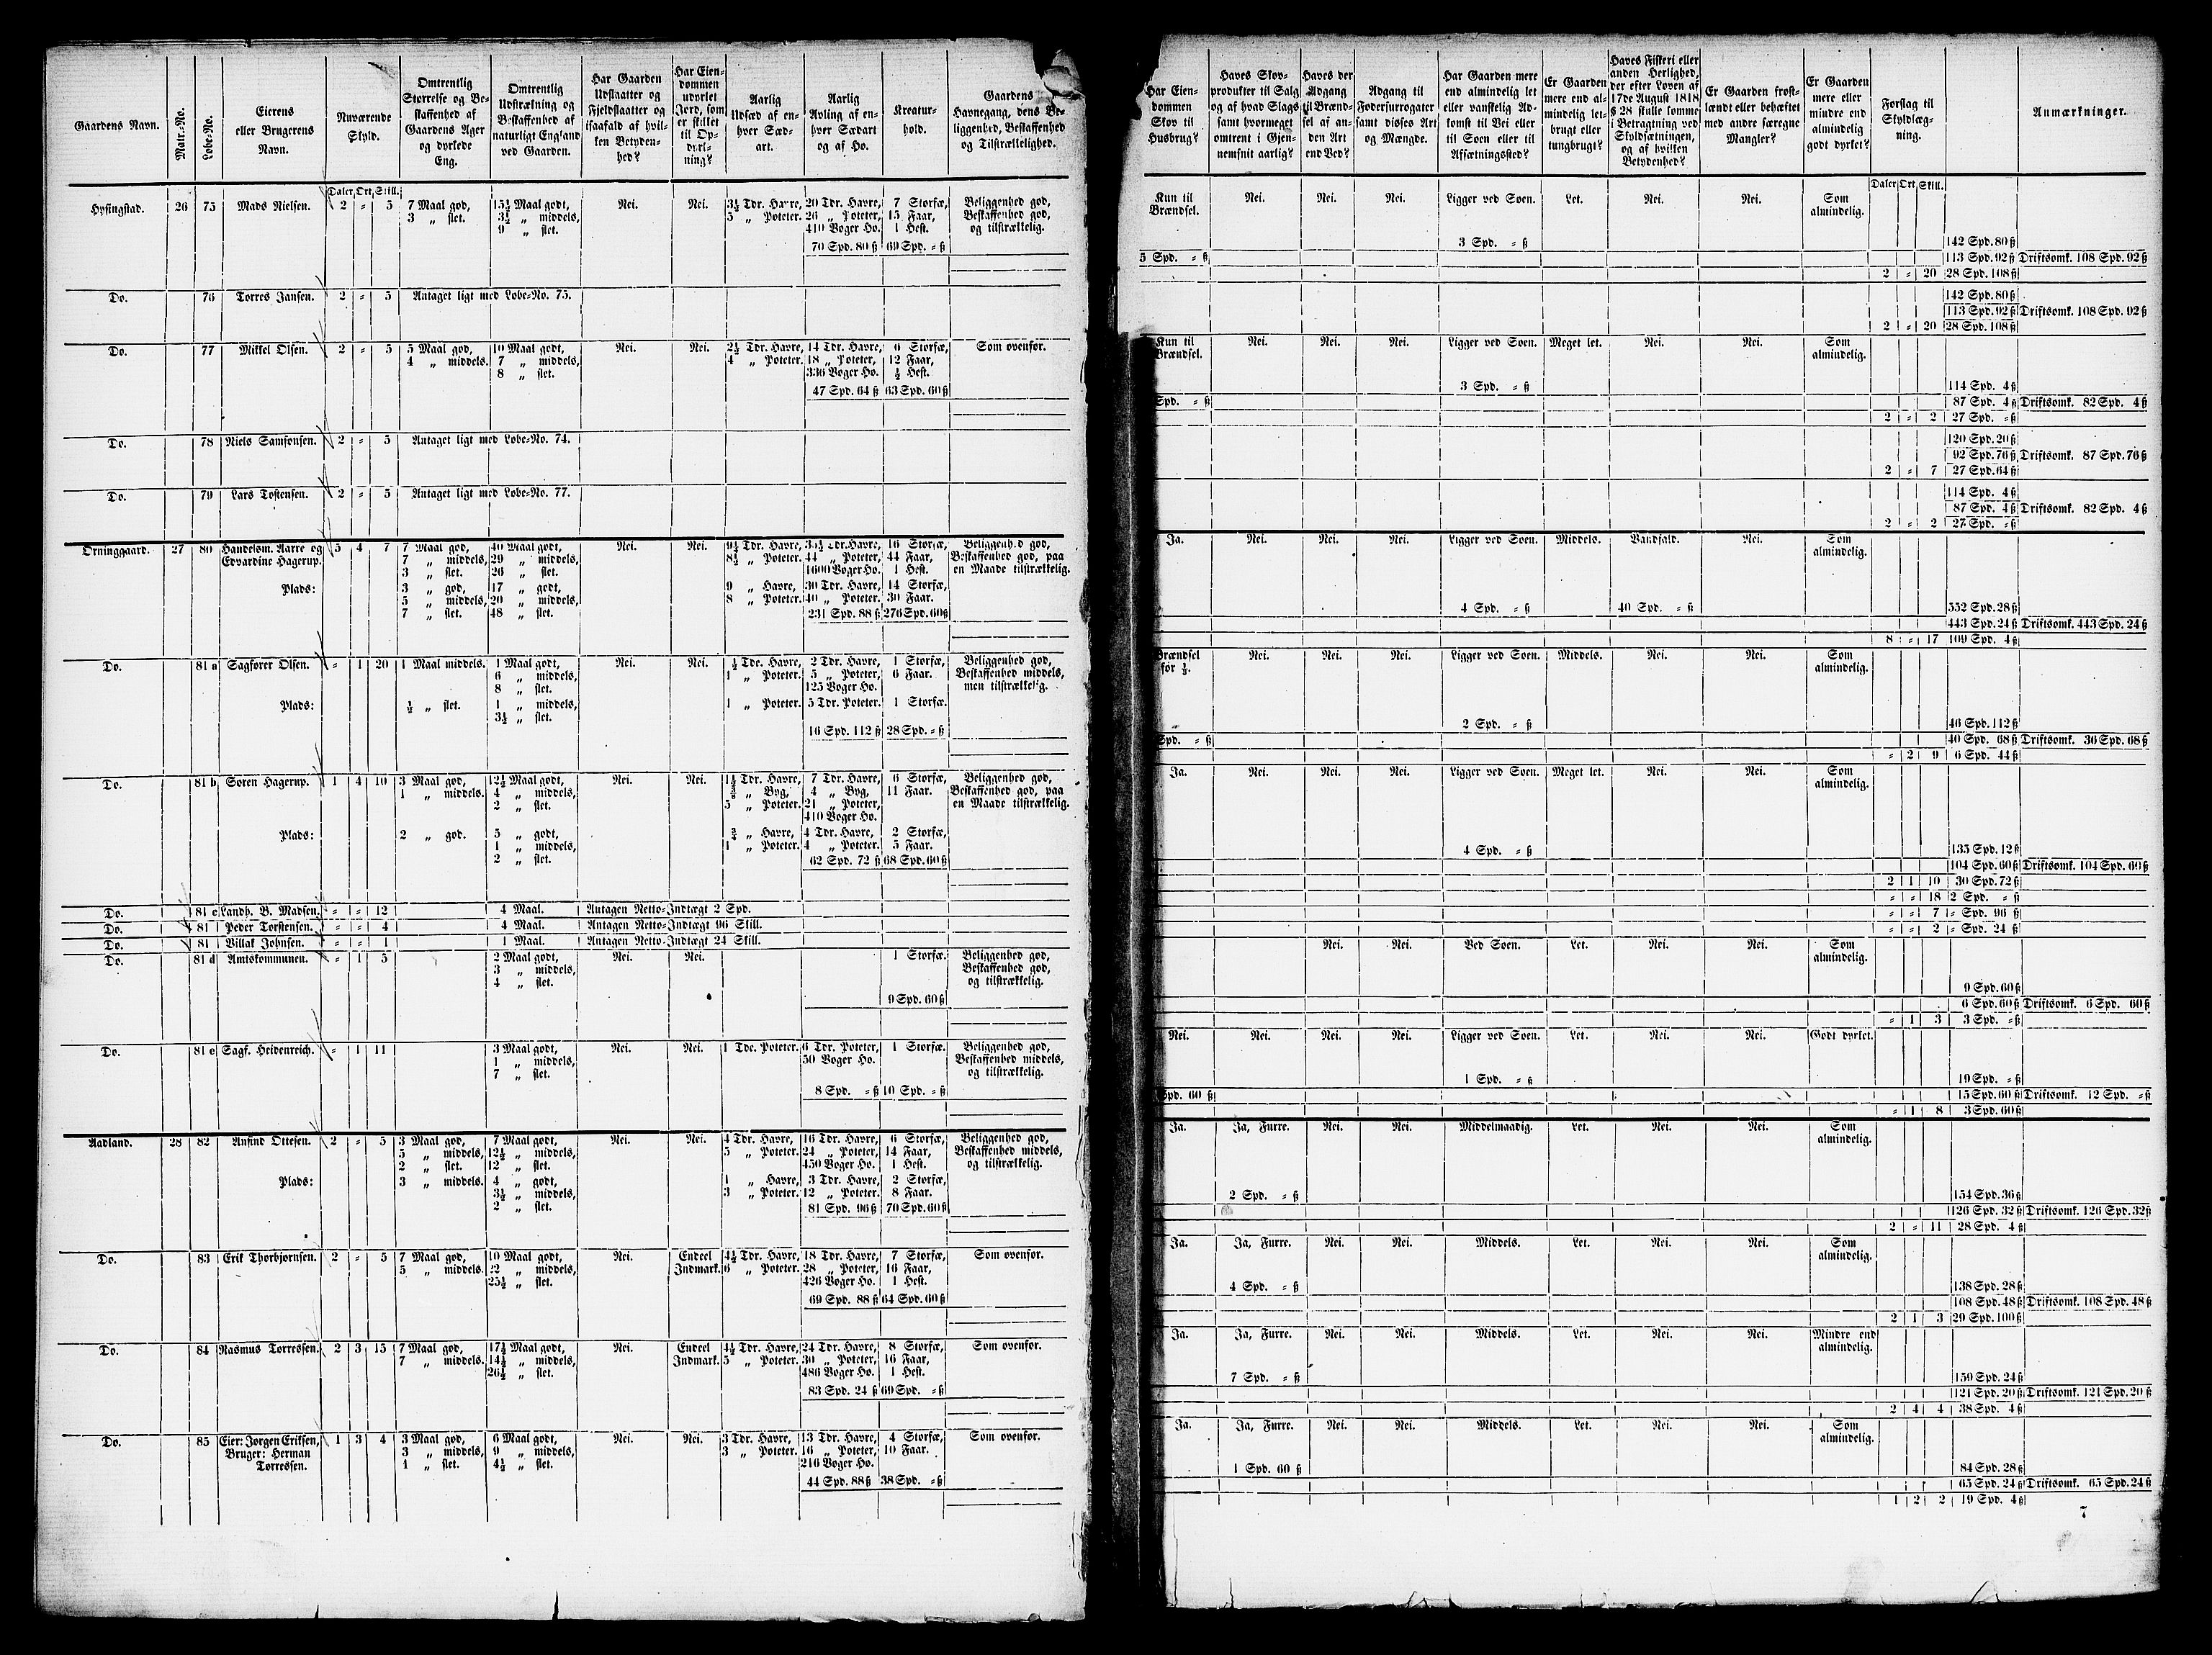 Gaardens Navn.
Matr.-No.
Løbe-No.
Eierens
eller Brugerens
Navn.
Nuværende
Skyld.
Omtrentlig
Størrelse og Be-
skaffenhed af
Gaardens Ager
og dyrkede
Eng.
Omtrentlig
Udstrækning og
Beskaffenhed af
naturligt England
ved Gaarden.
Har Gaarden
Udslaatter og
Fjeldslaatter og
isaafald af hvil-
ken Betyden-
hed?
Har Eien-
dommen
udyrket
Jord, som
er skikket
til Op-
dyrk-
ning?
Aarlig
Udsæd af en-
hver Sæd-
art.
Aarlig
Avling af en-
hver Sædart
og af Ho.
Kreatur-
hold.
Gaardens
Havnegang, dens Be-
liggenhed, Beskaffenhed
og Tilstrækkelighed.
Har Eien-
dommen
Skov til
Husbrug?
Haves Skov-
produkter til Salg
og af hvad Slags
samt hvormeget
omtrent i Gjen-
nemsnit aarlig?
Haves der
Adgang
til Brænd-
sel af an-
den Art
end Ved?
Adgang til
Fodersurrogater
samt disses Art
og Mængde.
Har Gaarden mere
end almindelig let
eller vanskelig Ad-
komst til Vei eller
til Søen eller til
Afsætningssted?
Er Gaarden
mere end al-
mindelig let-
brugt eller
tungbrugt?
Haves Fiskeri eller
anden Herlighed,
der efter Loven af
17de August 1818
§ 28 skulle komme
i Betragtning ved
Skyldsætningen,
og af hvilken
Betydenhed?
Er Gaarden frost-
lændt eller behæftet
med andre særegne
Mangler?
Er Gaarden
mere eller
mindre end
almindelig
godt dyrket?
Forslag til
Skyldlæg-
ning.
Anmærkninger.
Daler Ort Skill.
Daler Ort Skill.
Hysingstad. 26 75 Mads Nielsen. 2 = 5 7 Maal god, 15½ Maal godt, Nei. Nei. 3½ Tdr. Havre, 20 Tdr. Havre, 7 Storfæ, Beliggenhed god,
3 „ slet. 3½ „ middels, 5 „ Poteter. 26 „ Poteter, 15 Faar, Beskaffenhed god,
9 „ slet. 410 Voger Ho. 1 Hest. og tilstrækkelig.
70 Spd. 80 ß 69 Spd. = ß
Kun til Nei. Nei. Nei. Ligger ved Søen. Let. Nei. Nei. Som
Brændsel. almindelig.
3 Spd. = ß 142 Spd. 80 ß
5 Spd. = ß 113 Spd. 92 ß Driftsomk. 108 Spd. 92 ß
2 = 20 28 Spd. 108 ß
Do. 76 Torres Jansen. 2 = 5 Antaget ligt med Løbe-No. 75.
142 Spd. 80 ß
113 Spd. 92 ß Driftsomk. 108 Spd. 92 ß
2 = 20 28 Spd. 108 ß
Do. 77 Mikkel Olsen. 2 = 5 5 Maal god, 10 Maal godt, Nei. Nei. 2½ Tdr. Havre, 14 Tdr. Havre, 6 Storfæ, Som ovenfor.
4 „ middels. 7 „ middels, 4 „ Poteter. 18 „ Poteter, 12 Faar,
8 „ slet. 336 Voger Ho. ½ Hest.
47 Spd. 64 ß 63 Spd. 60 ß
Kun til Nei. Nei. Nei. Ligger ved Søen. Meget let. Nei. Nei. Som
Brændsel. almindelig.
3 Spd. = ß 114 Spd. 4 ß
Spd. = ß 87 Spd. 4 ß Driftsomk. 82 Spd. 4 ß
2 = 2 27 Spd. = ß
Do. 78 Niels Samsonsen. 2 = 5 Antaget ligt med Løbe-No. 74.
120 Spd. 20 ß
92 Spd. 76 ß Driftsomk. 87 Spd. 76 ß
2 = 7 27 Spd. 64 ß
Do. 79 Lars Tostensen. 2 = 5 Antaget ligt med Løbe-No. 77.
114 Spd. 4 ß
87 Spd. 4 ß Driftsomk. 82 Spd. 4 ß
2 = 2 27 Spd. = ß
Orninggaard. 27 80 Handelsm. Aarre og 5 4 7 7 Maal god, 40 Maal godt, Nei. Nei. 9½ Tdr. Havre, 35½ Tdr. Havre, 16 Storfæ, Beliggenhed god,
Edvardine Hagerup. 7 „ middels, 29 „ middels, 8½ „ Poteter. 44 „ Poteter, 44 Faar, Beskaffenhed god, paa
3 „ slet. 26 „ slet. 1600 Voger Ho. 1 Hest. en Maade tilstrækkelig.
Plads: 3 „ god, 17 „ godt, 9 „ Havre, 30 Tdr. Havre, 14 Storfæ,
5 „ middels, 20 „ middels, 8 „ Poteter. 40 „ Poteter. 30 Faar.
7 „ slet. 48 „ slet. 231 Spd. 88 ß 276 Spd. 60 ß
Ja. Nei. Nei. Nei. Ligger ved Søen. Middels. Vandfald. Nei. Som
almindelig.
4 Spd. = ß 40 Spd. = ß 552 Spd. 28 ß
443 Spd. 24 ß Driftsomk. 443 Spd. 24 ß
8 = 17 109 Spd. 4 ß
Do. 81 a Sagfører Olsen. = 1 20 1 Maal middels. 1 Maal godt, Nei. Nei. ½ Tde. Havre, 2 Tdr. Havre, 1 Storfæ, Beliggenhed god,
6 „ middels, 1 „ Poteter. 5 „ Poteter, 6 Faar. Beskaffenhed middels,
8 „ slet. 125 Voger Ho. men tilstrækkelig.
Plads: ½ „ slet. 1 „ middels, 1 „ Poteter. 5 Tdr. Poteter. 1 Storfæ.
3½ „ slet.
16 Spd. 112 ß 28 Spd. = ß
Brændsel Nei. Nei. Nei. Ligger ved Søen. Middels. Nei. Nei. Som
for ½. almindelig.
2 Spd. = ß 46 Spd. 112 ß
Spd. = ß 40 Spd. 68 ß Driftsomk. 36 Spd. 68 ß
= 2 9 6 Spd. 44 ß
Do. 81 b Søren Hagerup. 1 4 10 3 Maal god, 12½ Maal godt, Nei. Nei. 1½ Tdr. Havre, 7 Tdr. Havre, 6 Storfæ, Beliggenhed god,
1 „ middels. 4 „ middels, „ Byg, 4 „ Byg, 11 Faar. Beskaffenhed god, paa
2 „ slet. 5 „ Poteter. 21 „ Poteter, en Maade tilstrækkelig.
410 Voger Ho.
Plads: 2 „ god. 5 „ godt, ¾ „ Havre, 4 Tdr. Havre, 2 Storfæ,
1 „ middels, 1 „ Poteter. 4 „ Poteter. 5 Faar.
2 „ slet. 62 Spd. 72 ß 68 Spd. 60 ß
Ja. Nei. Nei. Nei. Ligger ved Søen. Meget let. Nei. Nei. Som
almindelig.
4 Spd. = ß 135 Spd. 12 ß
104 Spd. 60 ß Driftsomk. 104 Spd. 60 ß
2 1 10 30 Spd. 72 ß
Do. 81 c Landh. B. Madsen. = = 12 4 Maal. Antagen Netto-Indtægt 2 Spd. = = 18 2 Spd. = ß
Do. 81 Peder Torstensen. = = 4 4 Maal. Antagen Netto-Indtægt 96 Skill. = = 7 = Spd. 96 ß
Do. 81 Villak Johnsen. = = 1 1 Maal. Antagen Netto-Indtægt 24 Skill. = = 2 = Spd. 24 ß
Do. 81 d Amtskommunen. = 1 5 2 Maal godt, Nei. Nei. 1 Storfæ. Beliggenhed god,
3 „ middels, Beskaffenhed god,
4 „ slet. og tilstrækkelig.
9 Spd. 60 ß
Nei. Nei. Ved Søen. Let. Nei. Nei. Som
almindelig.
9 Spd. 60 ß
6 Spd. 60 ß Driftsomk. 6 Spd. 60 ß
= 1 3 3 Spd. = ß
Do. 81 e Sagf. Heidenreich. = 1 11 3 Maal godt, Nei. Nei. 1 Tde. Poteter. 6 Tdr. Poteter, 1 Storfæ. Beliggenhed god,
1 „ middels, 50 Voger Ho. Beskaffenhed middels,
7 „ slet. og tilstrækkelig.
8 Spd. = ß 10 Spd. = ß
Nei. Nei. Nei. Nei. Ligger ved Søen. Let. Nei. Nei. Godt dyrket.
1 Spd. = ß 19 Spd. = ß
Spd. 60 ß 15 Spd. 60 ß Driftsomk. 12 Spd. = ß
= 1 8 3 Spd. 60 ß
Aadland. 28 82 Anfind Ottesen. 2 = 5 3 Maal god, 7 Maal godt, Nei. Nei. 4 Tdr. Havre, 16 Tdr. Havre, 6 Storfæ, Beliggenhed god,
5 „ middels, 12½ „ middels, 5 „ Poteter. 24 „ Poteter, 14 Faar, Beskaffenhed middels,
2 „ slet. 12 „ slet. 450 Voger Ho. 1 Hest. og tilstrækkelig.
Plads: 3 „ middels. 4 „ godt, 1 „ Havre, 3 Tdr. Havre, 2 Storfæ,
3½ „ middels, 3 „ Poteter. 12 „ Poteter. 8 Faar.
2 „ slet. 81 Spd. 96 ß 70 Spd. 60 ß
Ja. Ja, Furre. Nei. Nei. Middelmaadig. Let. Nei. Nei. Som
almindelig.
2 Spd. = ß 154 Spd. 36 ß
126 Spd. 32 ß Driftsomk. 126 Spd. 32 ß
2 = 11 28 Spd. 4 ß
Do. 83 Erik Thorbjørnsen. 2 = 5 7 Maal god, 10 Maal godt, Nei. Endeel 4½ Tdr. Havre, 18 Tdr. Havre, 7 Storfæ, Som ovenfor.
5 „ middels. 22 „ middels, Indmark. 6 „ Poteter. 28 „ Poteter, 16 Faar,
25½ „ slet. 426 Voger Ho. 1 Hest.
69 Spd. 88 ß 64 Spd. 60 ß
Ja. Ja, Furre. Nei. Nei. Middels. Let. Nei. Nei. Som
almindelig.
4 Spd. = ß 138 Spd. 28 ß
108 Spd. 48 ß Driftsomk. 108 Spd. 48 ß
2 1 3 29 Spd. 100 ß
Do. 84 Rasmus Torresen. 2 3 15 7 Maal god, 17½ Maal godt, Nei. Endeel 4½ Tdr. Havre, 24 Tdr. Havre, 8 Storfæ, Som ovenfor.
7 „ middels. 14½ „ middels, Indmark. 5 „ Poteter. 30 „ Poteter, 16 Faar,
26½ „ slet. 486 Voger Ho. 1 Hest.
83 Spd. 24 ß 69 Spd. = ß
Ja. Ja, Furre. Nei. Nei. Middels. Let. Nei. Nei. Mindre end
almindelig.
7 Spd. = ß 159 Spd. 24 ß
121 Spd. 20 ß Driftsomk. 121 Spd. 20 ß
2 4 4 38 Spd. 4 ß
Do. 85 Eier: Jørgen Eriksen, 1 3 4 3 Maal god, 6 Maal godt, Nei. Nei. 3 Tdr. Havre, 13 Tdr. Havre, 4 Storfæ, Som ovenfor.
Bruger: Herman 3 „ middels, 9 „ middels, 3 „ Poteter. 16 „ Poteter, 10 Faar.
Torresen. 1 „ slet. 4½ „ slet. 216 Voger Ho.
44 Spd. 88 ß 38 Spd. = ß
Ja. Ja, Furre. Nei. Nei. Middels. Let. Nei. Nei. Som
almindelig.
1 Spd. 60 ß 84 Spd. 28 ß
65 Spd. 24 ß Driftsomk. 65 Spd. 24 ß
1 2 2 19 Spd. 4 ß
7